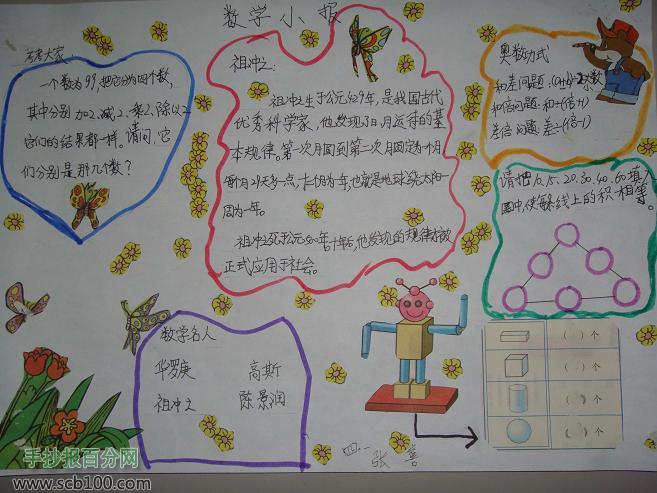 数学小报
考考大家:
一个数为99,把它分为四个数,
其中分别加2、减2、乘2、除以2
它们的结果都一样。请问,它
们分别是那几个数?
祖冲之:
祖冲之生于公元429年,是我国古代
优秀科学家,他发现了日月运行的基
本规律。第一次月圆到第一次月圆定为一个月
为一年,也就是地球绕太阳一
周为一年。
祖冲之死于公元500年,他发现的规律才被
正式应用于社会。
奥数方式
和差问题:
和倍问题:和÷(倍+1)
差倍问题:差÷(倍-1)
请把10、15、20、30、40、60填入
圈中,使每条线上的积相等。
数学名人
华罗庚 高斯
祖冲之 陈景润
( )个
( )个
( )个
( )个
四.一
张 善
手抄报百分网
www.scb100.com